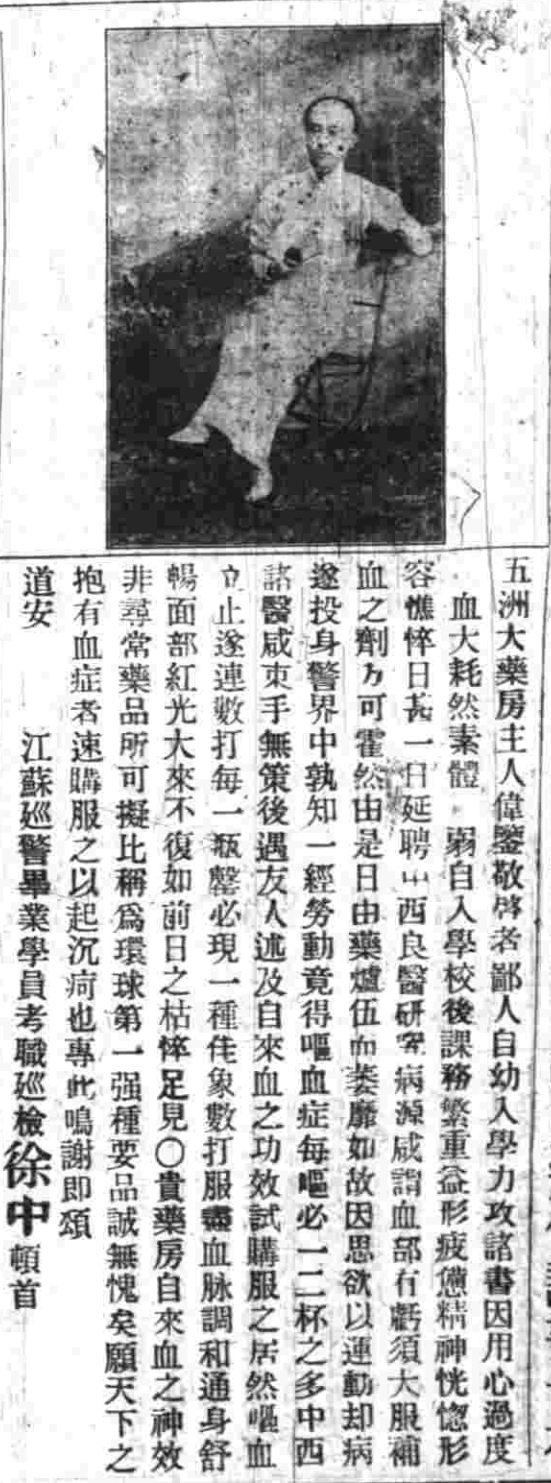 五洲大藥房主人偉鑒敬啓者鄙人自幼入學力攻諸書因用心過度
血大耗然素體 弱自入學校後課務繁重益形疲憊精神恍惚形
容憔悴日甚一日延聘中西良醫研究病源咸謂血部有虧須大服補
血之劑方可霍然由是日由藥爐伍而萎靡如故因思欲以運動却病
遂投身警界中孰知一經勞動竟得嘔血症每嘔必一二杯之多中西
諸醫咸束手無策後遇友人述及自來血之功效試購服之居然嘔血
立止遂連數打每一瓶罄必現一種佳象數打服盡血脉調和通身舒
暢面部紅光大來不復如前日之枯悴足見〇貴藥房自來血之神效
非尋常藥品所可擬比稱爲環球第一强種要品誠無愧矣願天下之
抱有血症者速購服之以起沉疴也專此鳴謝即頌
道安 江蘇廵警畢業學員考職廵檢徐中頓首